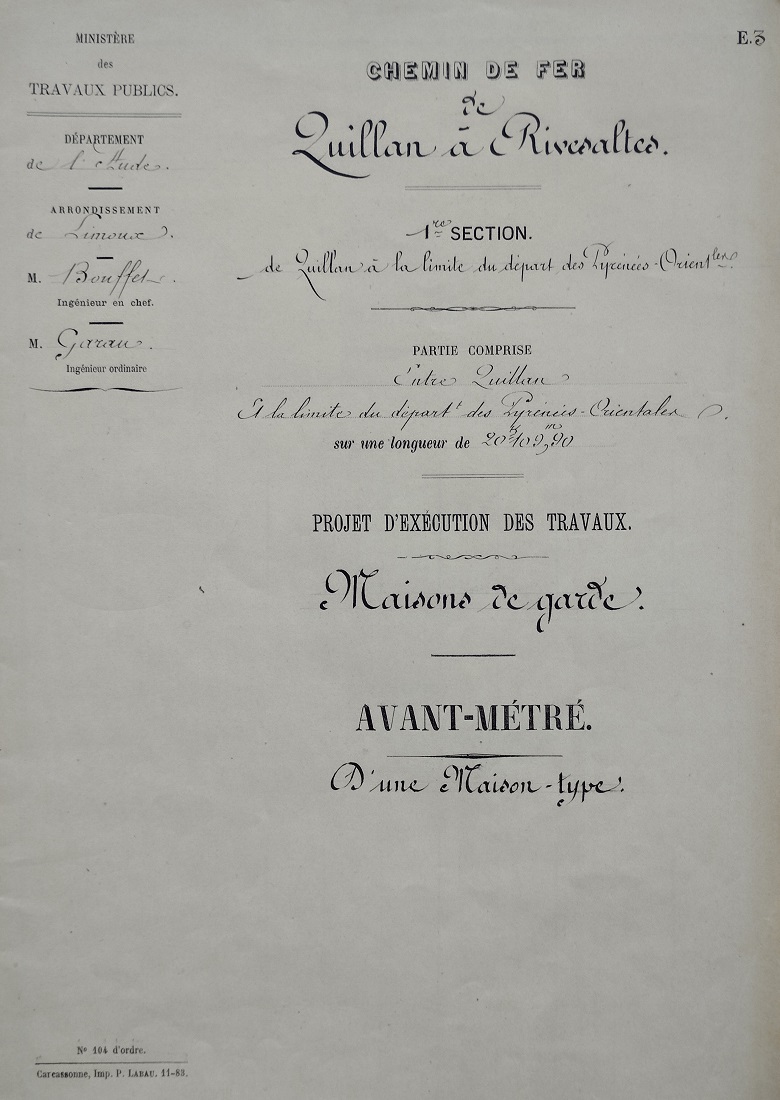 MINISTÈRE
des
TRAVAUX PUBLICS.
DÉPARTEMENT
de l'Aude.
ARRONDISSEMENT
de Limoux.
M. Bouffet.
Ingénieur en chef.
M. Garau.
Ingénieur ordinaire
E.3
CHEMIN DE FER
de
Quillan à Rivesaltes.
1re SECTION.
de Quillan à la limite du départ des Pyrénées-Orientles
PARTIE COMPRISE
Entre Quillan
Et la limite du départt des Pyrénées-Orientales.
sur une longueur de 20k109m,90
PROJET D'EXÉCUTION DES TRAVAUX.
Maisons de garde.
AVANT-MÉTRÉ.
D'une Maison-type.
No 104 d'ordre.
Carcassonne, Imp. P. LABAU. 11-83.